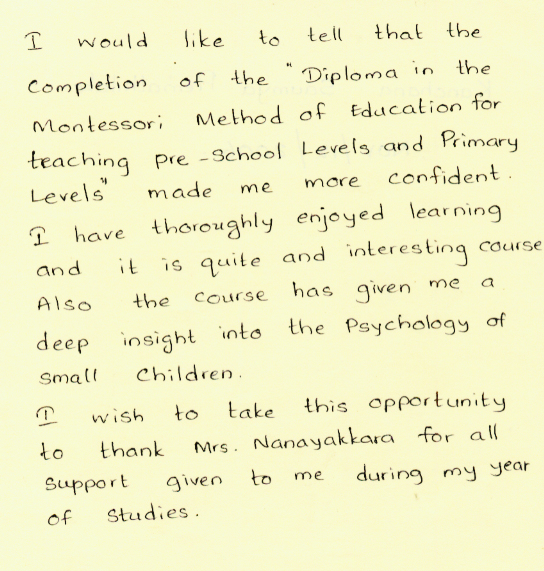 I would like to tell that the
completion of the "Diploma in the
Montessori Method of Education for
teaching Pre-School Levels and Primary
Levels" made me more confident.
I have thoroughly enjoyed learning
and it is quite and interesting course
Also the course has given me a
deep insight into the Psychology of
Small Children.
I wish to take this opportunity
to thank Mrs. Nanayakkara for all
Support given to me during my year
of Studies.